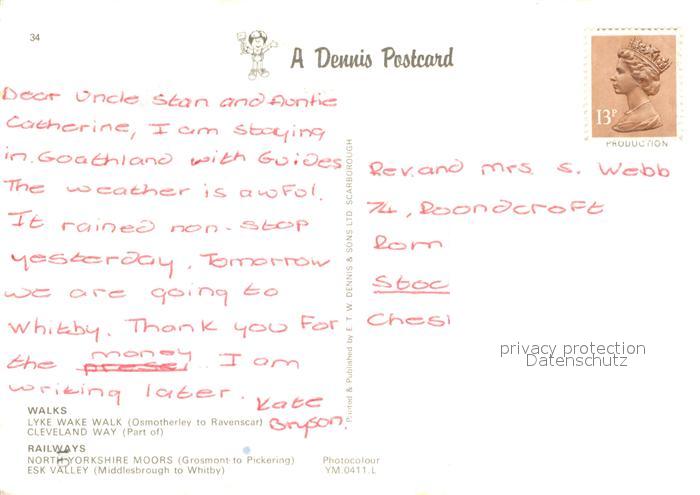 34
A Dennis Postcard
13P
PRODUCTION
Dear Uncle Stan and Auntie
Catherine, I am staying
in Goathland with Guides
The weather is awful.
It rained non-stop
yesterday. Tomorrow
we are going to
Whitby. Thank you for
the money. I am
writing later. Kate
Bryson.
Printed & Published by E.T.W. DENNIS & SONS LTD. SCARBOROUGH
Rev. and Mrs S. Webb
74, Roundcroft
Rom
Stoc
Chesi
privacy protection
Datenschutz
WALKS
LYKE WAKE WALK (Osmotherley to Ravenscar)
CLEVELAND WAY (Part of)
RAILWAYS
NORTH YORKSHIRE MOORS (Grosmont to Pickering)
ESK VALLEY (Middlesbrough to Whitby)
Photocolour
YM.0411.L